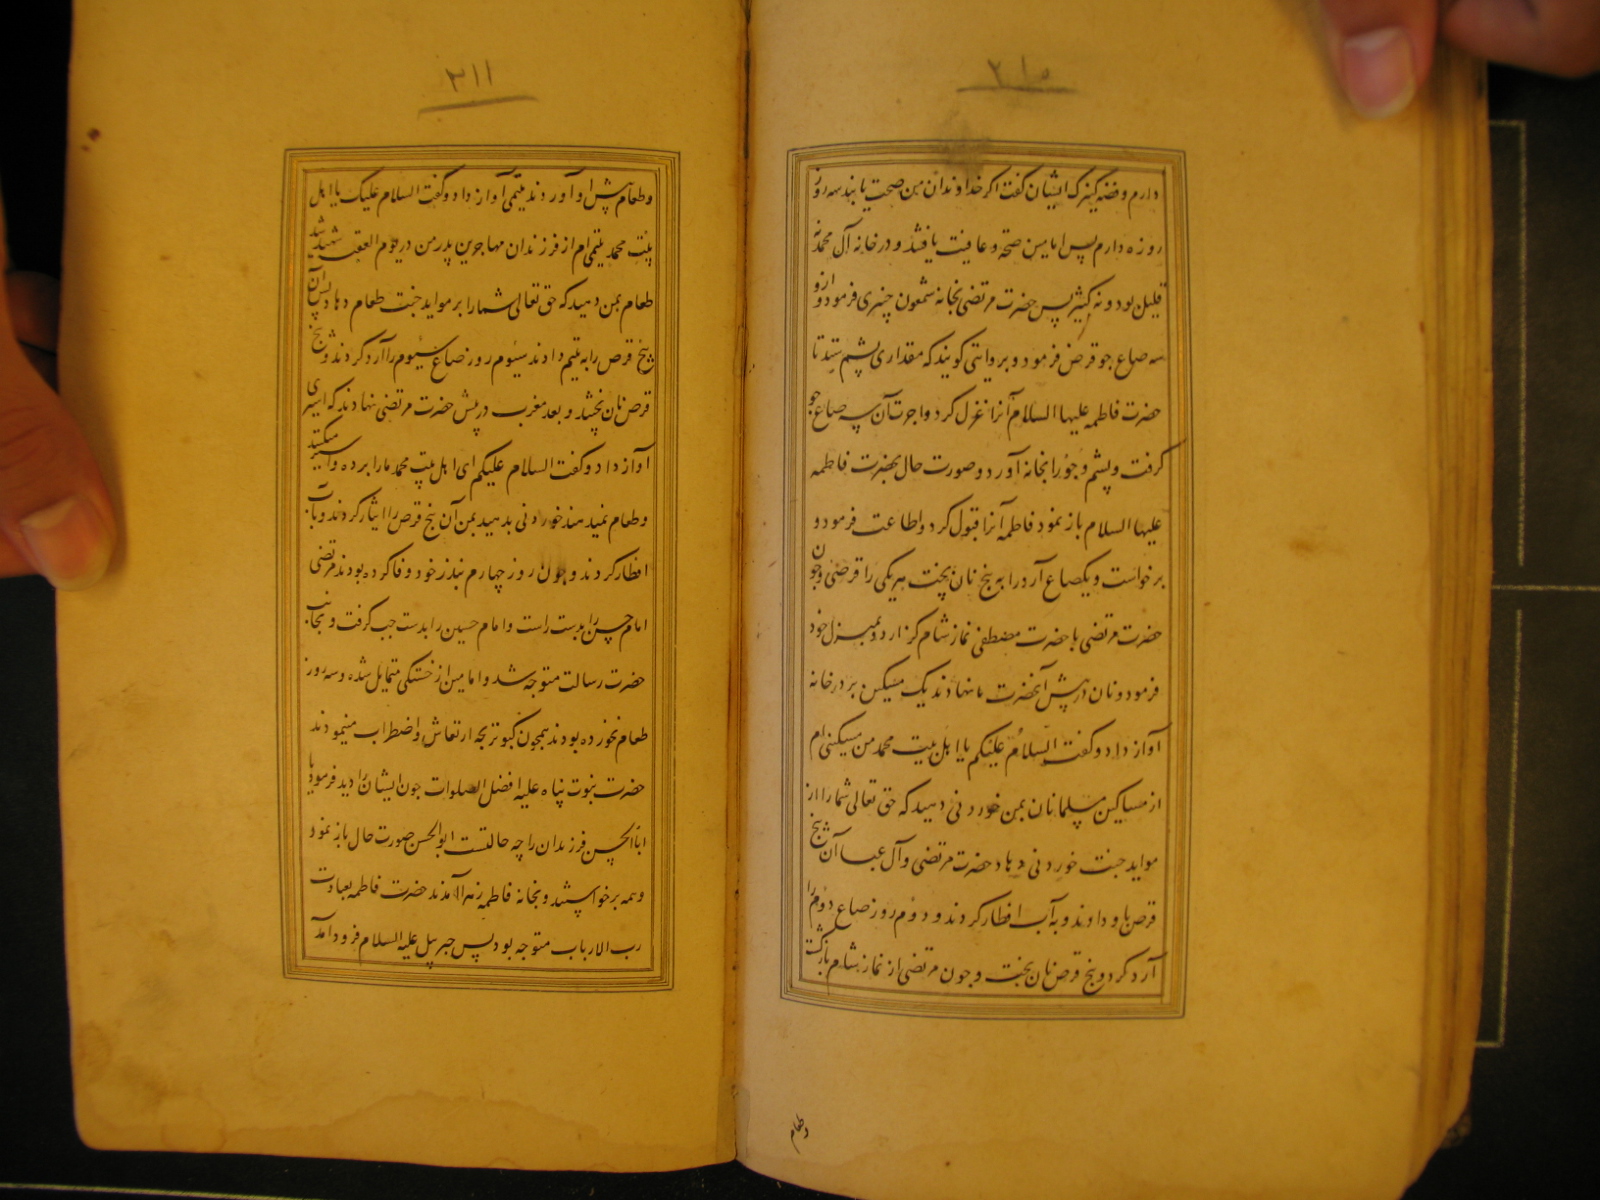 ۲۱۰
دارم و فضه کنیزک ایشان گفت اگر خداوندان من صحت یابند سه روز
روزه دارم پس امامین صحه و عافیت یافتند و در خانه آل محمد نه
قلیل بود و نه کثیر پس حضرت مرتضی بخانه شمعون چیزی فرمود و ازو
سه صاع جو قرض فرمود و بروایتی گویند که مقداری پشم ستد تا
حضرت فاطمه علیها السلام آنرا غزل کرد و اجرت آن سه صاع جو
گرفت و پشم و جو را بخانه آورد و صورت حال بحضرت فاطمه
علیها السلام باز نمود فاطمه آنرا قبول کرد و اطاعت فرمود و
برخواست و یکصاع آرد را به پنج نان پخت هر یکی را قرصی و چون
حضرت مرتضی با حضرت مصطفی نماز شام گزارد و بمنزل خود
فرمود و نان در پیش آنحضرت بنهادند یک مسکین بر در خانه
آواز داد و گفت السلام علیکم یا اهل بیت محمد من مسکینی ام
از مساکین مسلمانان بمن خوردنی دهید که حق تعالی شما را از
مواید جنت خوردنی دهاد حضرت مرتضی و آل عبا آن پنج
قرص باو دادند و به آب افطار کردند و دوم روز صاع دوم را
آرد کرد و پنج قرص نان پخت و چون مرتضی از نماز شام بازگشت
وطعام
۲۱۱
وطعام پیش او آوردند یتیمی آواز داد و گفت السلام علیک یا اهل
بیت محمد یتیمی ام از فرزندان مهاجرین پدر من در یوم العقبه شهید شد
طعام بمن دهید که حق تعالی شما را بر مواید جنت طعام دهاد پس آن
پنج قرص را به یتیم دادند سیوم روز صاع سیوم را آرد کردند و پنج
قرص نان پختند و بعد مغرب در پیش حضرت مرتضی نهادند که اسیری
آواز داد و گفت السلام علیکم ای اهل بیت محمد ما را برده و اسیر میکنید
و طعام نمیدهند خوردنی بدهید بمن آن پنج قرص را ایثار کردند و بآب
افطار کردند و چون روز چهارم بنذر خود وفا کرده بودند مرتضی
امام حسن را بدست راست و امام حسین را بدست چپ گرفت و بجانب
حضرت رسالت متوجه شد و امامین از خستگی متمایل شده و سه روز
طعام نخورده بودند همچون کبوتر بچه ارتعاش و اضطراب مینمودند
حضرت نبوت پناه علیه افضل الصلوات چون ایشان را دید فرمود یا
ابا الحسن فرزندان را چه حالتست ابوالحسن صورت حال باز نمود
و همه برخواستند و بخانه فاطمه زهرا آمدند حضرت فاطمه بعبادت
رب الارباب متوجه بود پس جبرییل علیه السلام فرود آمد